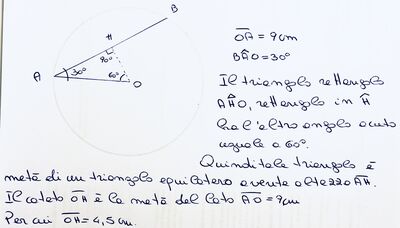 B
H
90°
A
30°
60°
O
OA = 9cm
BÂO = 30°
Il triangolo rettangolo
AĤO, rettangolo in Ĥ
ha l'altro angolo acuto
uguale a 60°.
Quindi tale triangolo è
metà di un triangolo equilatero avente altezza AH.
Il cateto OH è la metà del lato AO = 9cm
Per cui OH = 4,5cm.